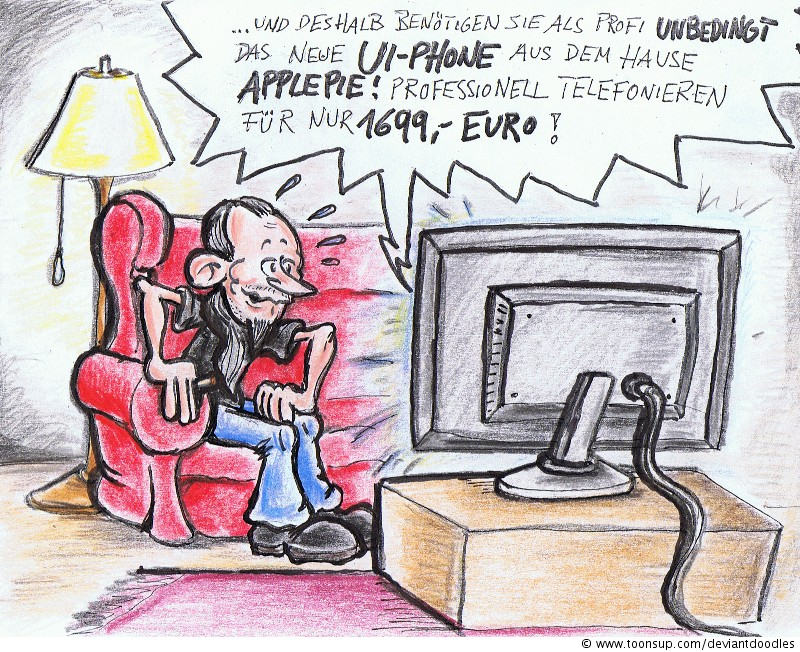 ...UND DESHALB BENÖTIGEN SIE ALS PROFI UNBEDINGT
DAS NEUE UI-PHONE AUS DEM HAUSE
APPLEPIE! PROFESSIONELL TELEFONIEREN
FÜR NUR 1699,- EURO!
© www.toonsup.com/deviantdoodles